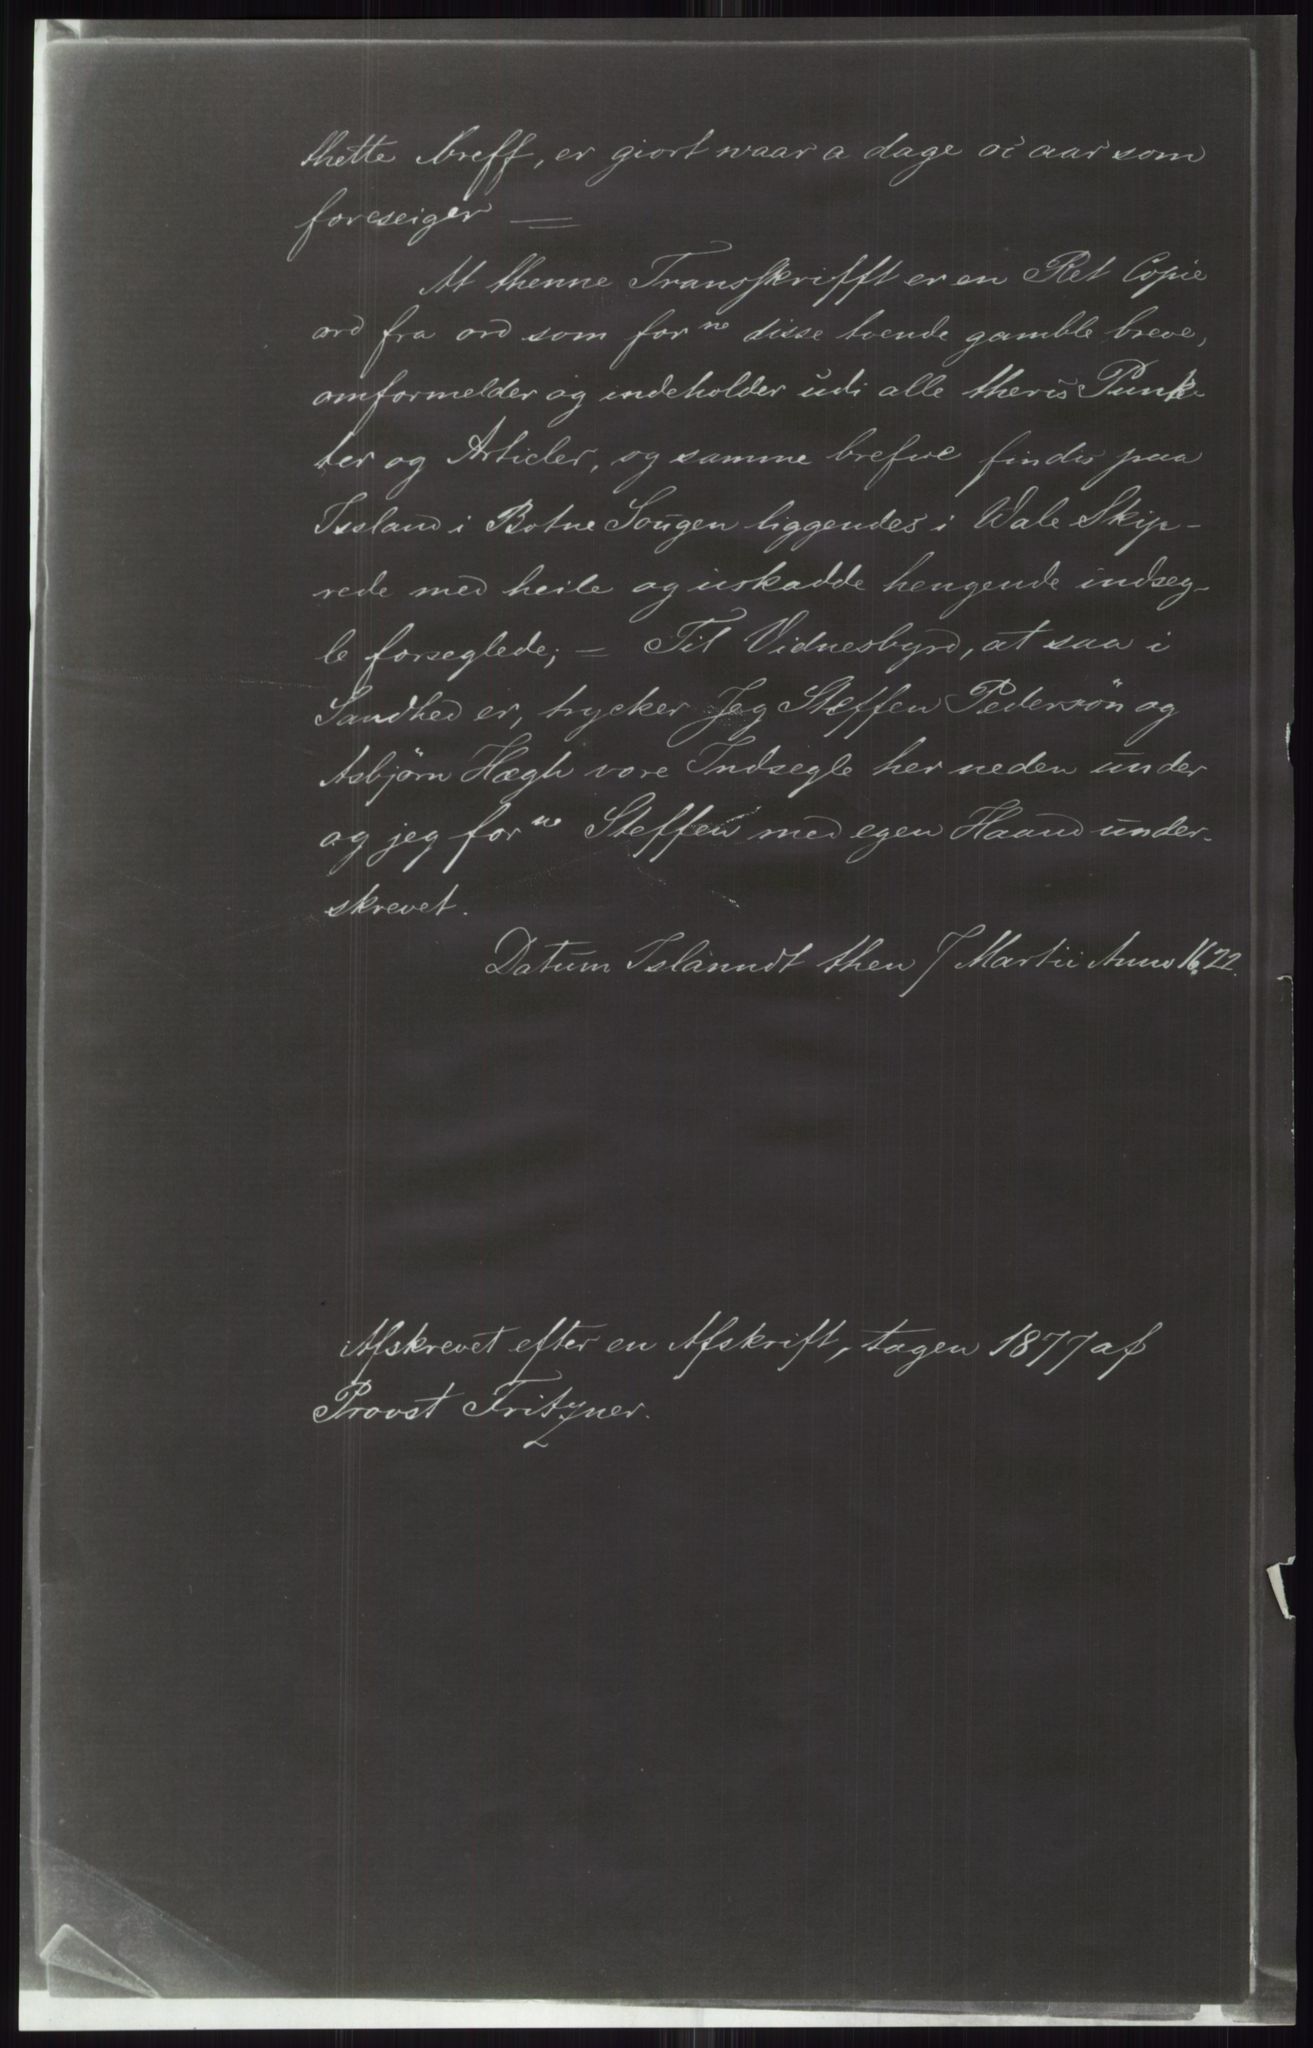 thette breff, er giort waar a dage oc aar som
foreseiger —
At thenne Transskrifft er en Ret Copie
ord fra ord som for ne disse tvende gamble breve,
omformelder og indeholder udi alle theris Punk-
ter og Articler, og samme brefve findis paa
Issland i Botne Sougen liggendes i Wale Skip-
rede med heile og uskadde hengende indseg-
le forseglede; – Til Vidnesbyrd, at saa i
Sandhed er, trycker Jeg Steffen Pedersön og
Asbjörn Hægh vore Indsegle her neden under
og jeg for ne Steffen med egen Haand under-
skrevet.
Datum Islanndt then 7 Martii Anno 1622.
Afskrevet efter en Afskrift, tagen 1877 af
Provst Fritzner.